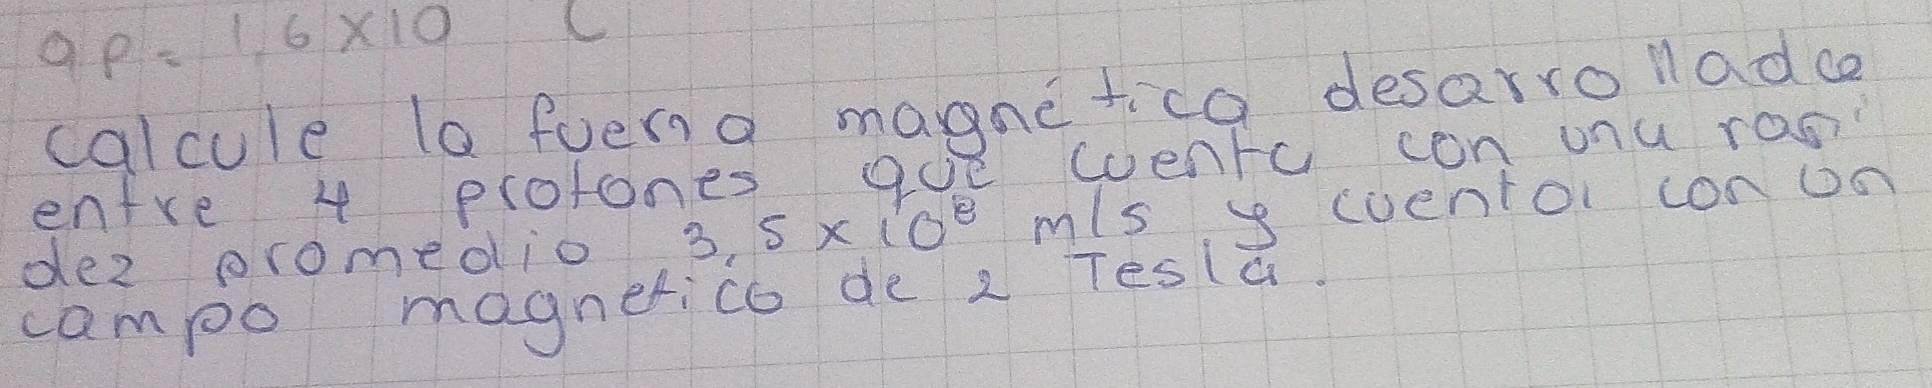 qp = 1,6 x 10 C
calcule la fuerza magnética desarrollada
entre 4 protones que cuenta con una rapi
dez promedio 3,5 x 10⁸ m/s y cuenta con un
campo magnetico de 2 Tesla.